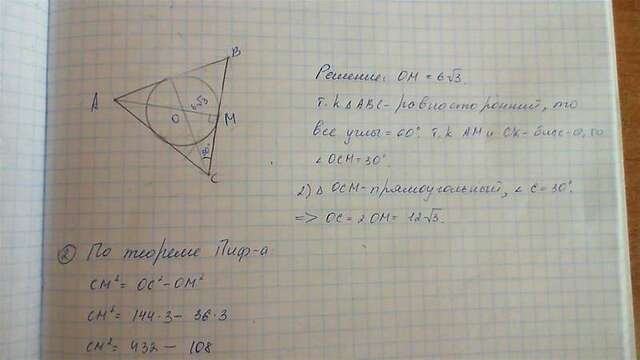 B
A
6√3
O
M
30°
C
Решение: OM = 6√3.
т.к △ABC - равносторонний, то
все углы = 60°. т.к AM и CK - бисс-а, то
∠OCM = 30°.
2) △ OCM - прямоугольный, ∠C = 30°.
=> OC = 2OM = 12√3.
② По теореме Пиф-а
CM² = OC² - OM²
CM² = 144·3 - 36·3
CM² = 432 - 108